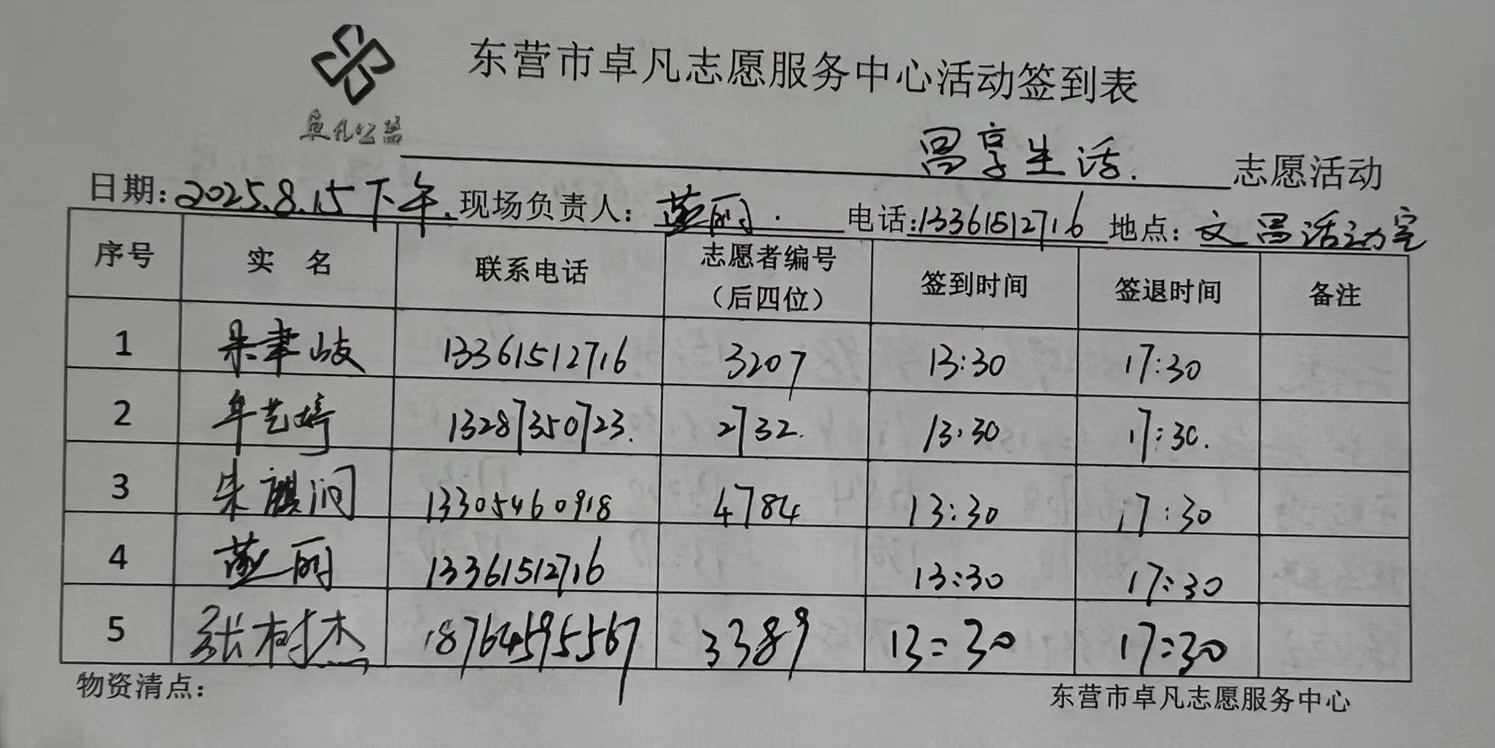 东营市卓凡志愿服务中心活动签到表
卓凡公益
昌享生活. 志愿活动
日期:2025.8.15下午.现场负责人:燕丽. 电话:13361512716 地点:文昌活动室
序号 实名 联系电话 志愿者编号(后四位) 签到时间 签退时间 备注
1 朱聿岐 13361512716 3207 13:30 17:30
2 牟艺婷 13287350723. 2732. 13:30 17:30.
3 朱麒润 13305460918 4784 13:30 17:30
4 燕丽 13361512716 13:30 17:30
5 张树杰 18764595567 3389 13:30 17:30
物资清点: 东营市卓凡志愿服务中心